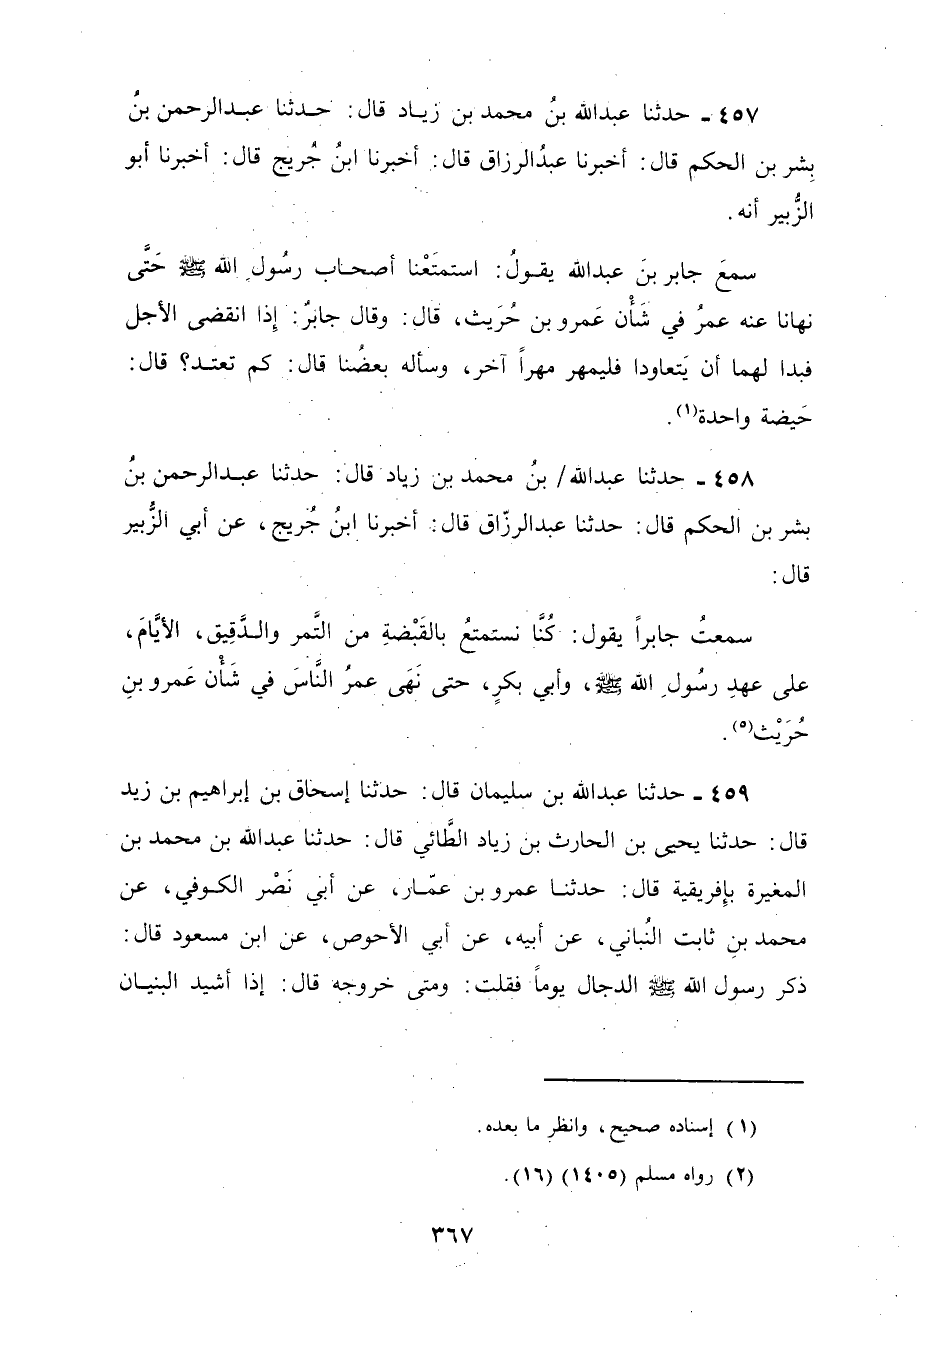 ٤٥٧ ـ حدثنا عبدالله بنُ محمد بن زيـاد قال: حـدثنا عبـدالرحمن بنُ
بِشر بن الحكم قال: أخبرنا عبدُالرزاق قال: أخبرنا ابنُ جُريج قال: أخبرنا أبو
الزُّبير أنه.
سمعَ جابر بنَ عبدالله يقـولُ: استمتَعْنا أصحـاب رسُول الله ﷺ حَتَّى
نهانا عنه عمرُ في شَأْن عَمرو بن حُرَيث، قال: وقال جابرُ: إِذا انقضى الأجل
فبدا لهما أن يَتعاودا فليمهر مهراً آخر، وسأله بعضُنا قال: كم تعتـد؟ قال:
حَيضة واحدة(١).
٤٥٨ ـ حدثنا عبدالله/ بنُ محمد بن زياد قال: حدثنا عبـدالرحمن بنُ
بشر بن الحكم قال: حدثنا عبدالرزّاق قال: أخبرنا ابنُ جُريج، عن أبي الزُّبير
قال:
سمعتُ جابراً يقول: كُنَّا نستمتعُ بالقَبْضةِ من التَّمر والـدَّقِيق، الأيَّامَ،
على عهدِ رسُولِ الله ﷺ، وأبي بكرٍ، حتى نَهَى عمرُ النَّاسَ في شَأْن عَمرو بنِ
حُرَيْث(٥).
٤٥٩ ـ حدثنا عبدالله بن سليمان قال: حدثنا إسحاق بن إبراهيم بن زيد
قال: حدثنا يحيى بن الحارث بن زياد الطَّائي قال: حدثنا عبدالله بن محمد بن
المغيرة بإفريقية قال: حدثنـا عمرو بن عمّـار، عن أبي نَصْر الكـوفي، عن
محمد بنِ ثابت النُباني، عن أبيه، عن أبي الأحوص، عن ابن مسعود قال:
ذكر رسول الله ﷺ الدجال يوماً فقلت: ومتى خروجه قال: إذا أشيد البنيـان
(١) إسناده صحيح، وانظر ما بعده.
(٢) رواه مسلم (١٤٠٥) (١٦).
٣٦٧